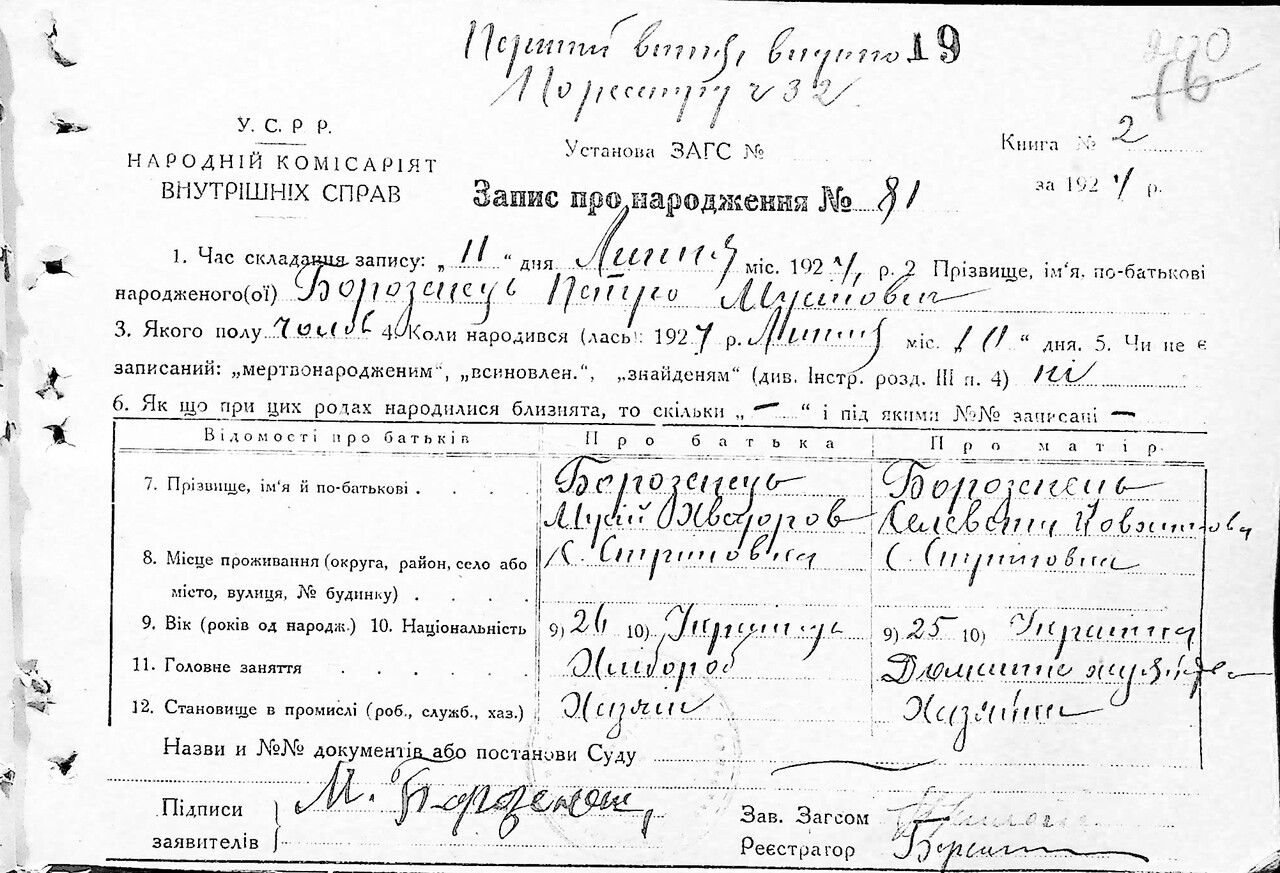 Перший витяг видано 19
По реєстру ч 32
200
16
У. С. Р Р.
НАРОДНІЙ КОМІСАРІЯТ
ВНУТРІШНІХ СПРАВ
Установа ЗАГС №
Книга № 2
за 1924 р.
Запис про народження № 81
1. Час складання запису: „ 11 “ дня Липня міс. 1924 р. 2 Прізвище, ім'я, по-батькові
народженого(ої) Борозенець Петро Мусійович
3. Якого полу чолов 4. Коли народився (лась): 1924 р. Липня міс. „ 11 “ дня. 5. Чи не є
записаний: „мертвонародженим“, „всиновлен.“, „знайденям“ (див. Інстр. розд. III п. 4) ні
6. Як що при цих родах народилися близнята, то скільки „ — “ і під якими №№ записані —
Відомості про батьків Про батька Про матір.
7. Прізвище, ім'я й по-батькові . . . . Борозенець Борозенець
Мусій Хведоров
8. Місце проживання (округа, район, село або С. Стритовка С. Стритовка
місто, вулиця, № будинку) . . . .
9. Вік (років од народж.) 10. Національність 9) 26 10) Українець 9) 25 10) Українка
11. Головне заняття . . . . . Хлібороб Домашнє
12. Становище в промислі (роб., служб., хаз.) Хазяїн Хазяйка
Назви и №№ документів або постанови Суду
Підписи
заявителів
М. Борозенец
Зав. Загсом
Реєстратор